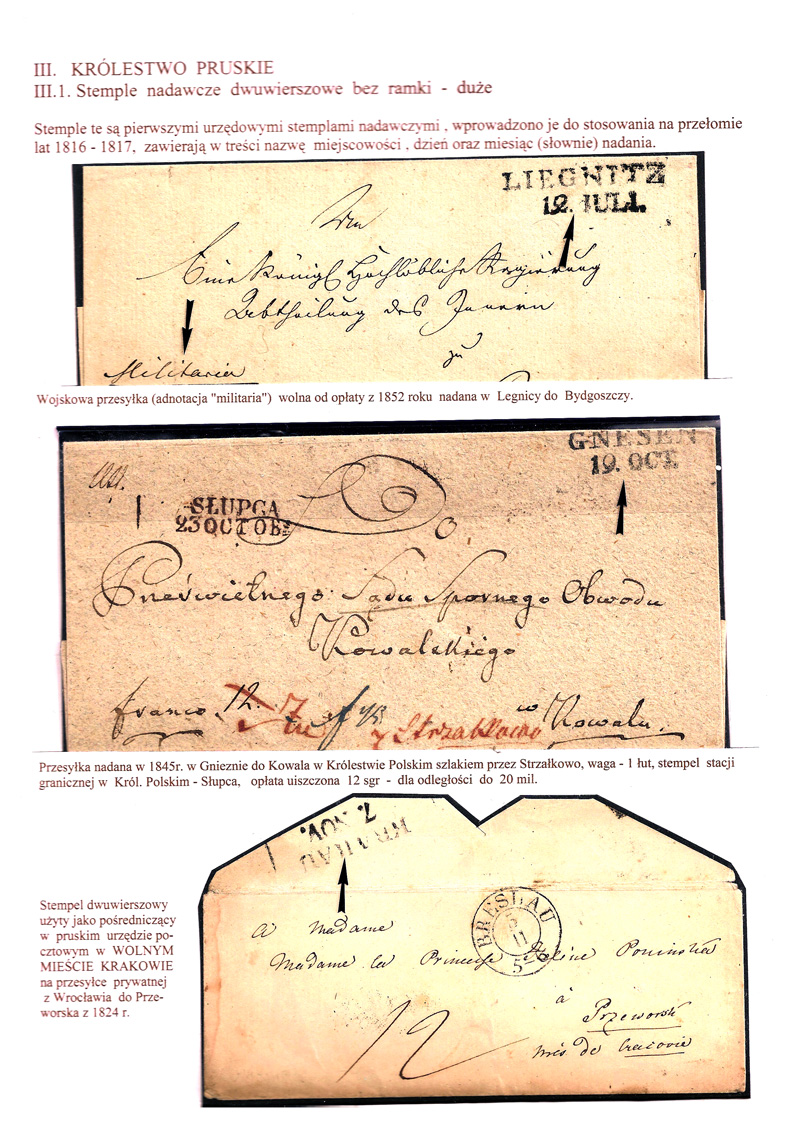 III. KRÓLESTWO PRUSKIE
III.1. Stemple nadawcze dwuwierszowe bez ramki - duże
Stemple te są pierwszymi urzędowymi stemplami nadawczymi , wprowadzono je do stosowania na przełomie
lat 1816 - 1817, zawierają w treści nazwę miejscowości , dzień oraz miesiąc (słownie) nadania.
LIEGNITZ
12. JULI.
An
Eine Königl Hochlöbliche Regierung
Abtheilung des Innern
zu
Militaria
Wojskowa przesyłka (adnotacja "militaria") wolna od opłaty z 1852 roku nadana w Legnicy do Bydgoszczy.
GNESEN
19. OCT.
SŁUPCA
23 OCTOB:
Prześwietnego Sądu Spornego Obwodu
Kowalskiego
franco 12.
z Strzałkowo
w Kowalu.
Przesyłka nadana w 1845r. w Gnieznie do Kowala w Królestwie Polskim szlakiem przez Strzałkowo, waga - 1 łut, stempel stacji
granicznej w Król. Polskim - Słupca, opłata uiszczona 12 sgr - dla odległości do 20 mil.
KRAKAU
7. NOV.
BRESLAU
5
11
Stempel dwuwierszowy
użyty jako pośredniczący
w pruskim urzędzie po-
cztowym w WOLNYM
MIEŚCIE KRAKOWIE
na przesyłce prywatnej
z Wrocławia do Prze-
worska z 1824 r.
A Madame
Madame la Princesse Helène Poninska
à
Przeworsk
près de Cracovie
12